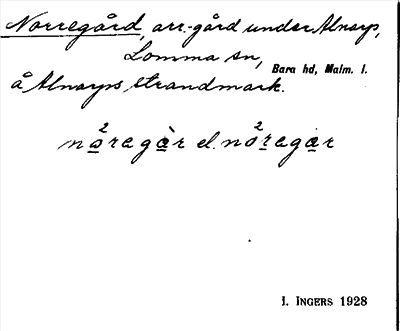 Norregård, arr.-gård under Alnarp,
Lomma sn, Bara hd, Malm. l.
å Alnarps strandmark.
no²regàr el. no²regær
I. INGERS 1928